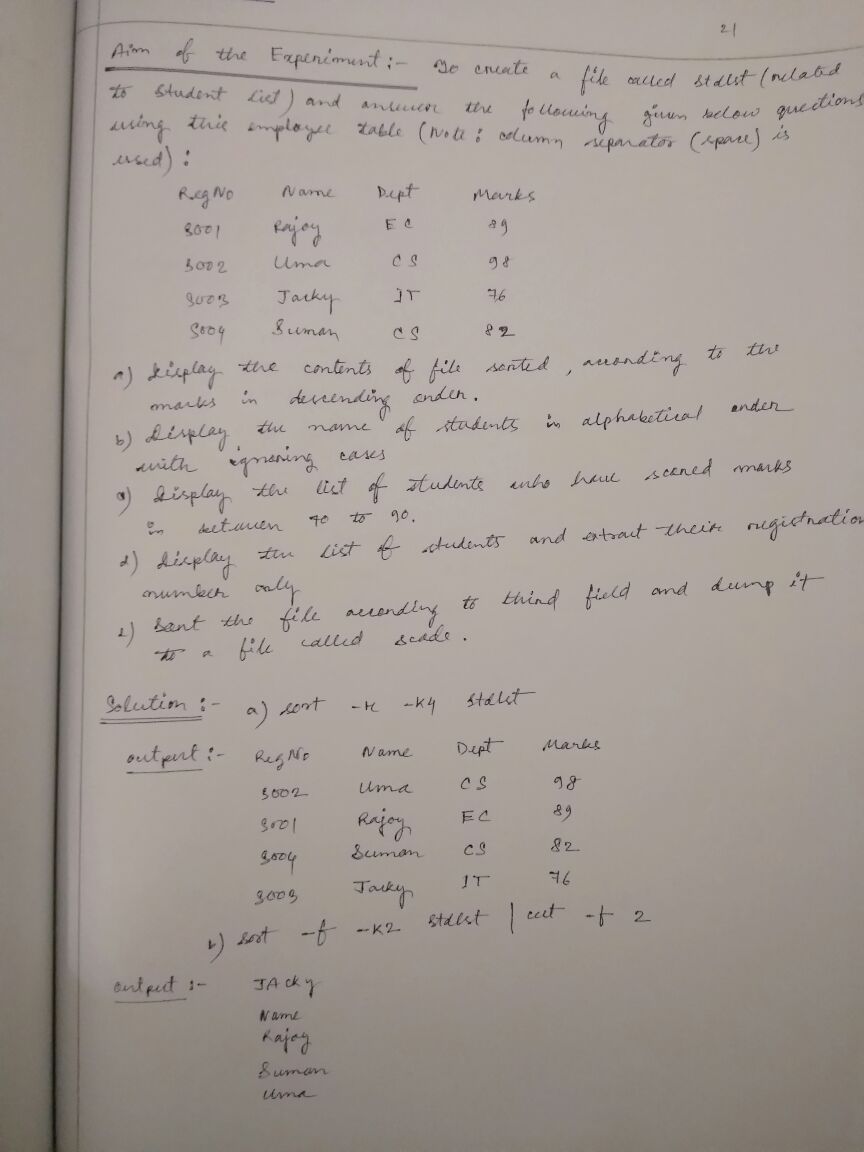 21
Aim of the Experiment :- To create a file called stdlst (related
to student list) and answer the following given below questions
using this employee table (Note : column separator (space) is
used) :
RegNo Name Dept Marks
3001 Rajoy EC 89
3002 Uma CS 98
3003 Jacky IT 76
3004 Suman CS 82
a) Display the contents of file sorted, according to the
marks in descending order.
b) Display the name of students in alphabetical order
with ignoring cases
c) Display the list of students who have scored marks
in between 70 to 90.
d) Display the list of students and extract their registration
number only
e) Sort the file according to third field and dump it
to a file called scade.
Solution :- a) sort -r -k4 stdlst
output :- RegNo Name Dept Marks
3002 Uma CS 98
3001 Rajoy EC 89
3004 Suman CS 82
3003 Jacky IT 76
b) sort -f -k2 stdlst | cut -f 2
output :- JAcky
Name
Rajoy
Suman
Uma